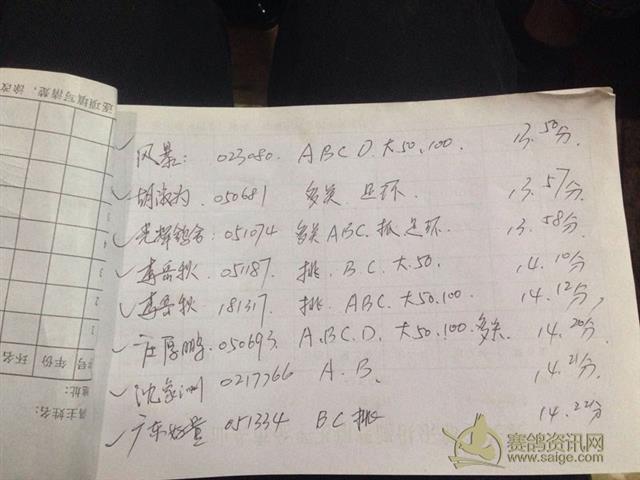 风景: 023080. A B C D. 大50.100. 13.50分
胡淑为. 050681 多关. 足环. 13.57分.
光辉鸽舍: 051074 多关 ABC. 抓. 足环. 13.58分.
李岳秋. 051187. 挑. B.C. 大.50. 14.10分
李岳秋. 181317. 挑. ABC. 大50.100. 14.12分,
庄厚鹏. 050693. A.B.C.D. 大50.100.多关. 14.20分
沈家洲 0217766 A.B. 14.21分.
广东 051334 BC 挑 14.22分
逐项填写清楚,涂改
号 年份 环名
地址:
主姓名:
赛鸽资讯网
www.saige.com